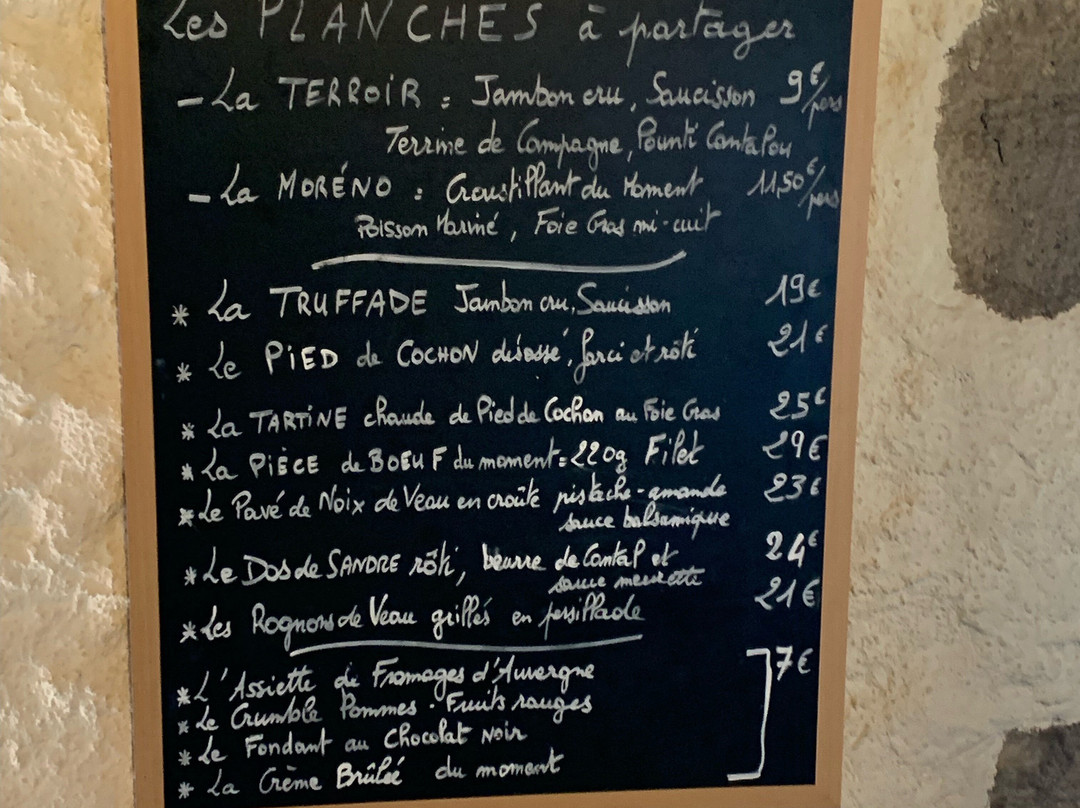 Les PLANCHES à partager
- La TERROiR : Jambon cru, Saucisson 9€/pers
Terrine de Campagne, Pounti Cantalou
- La MORÉNO : Croustillant du Moment 11,50€/pers
Poisson Mariné, Foie Gras mi-cuit
* La TRUFFADE Jambon cru, Saucisson 19€
* Le PiED de COCHON désossé, farci et rôti 21€
* La TARTiNE chaude de Pied de Cochon au Foie Gras 25€
* La PIÈCE de BOEUF du moment = 220g Filet 29€
* Le Pavé de Noix de Veau en croûte pistache-amande 23€
sauce balsamique
* Le Dos de SANDRE rôti, beurre de Cantal et 24€
sauce meurette
* Les Rognons de Veau grillés en persillade 21€
* L'Assiette de Fromages d'Auvergne 7€
* Le Crumble Pommes - Fruits rouges
* Le Fondant au Chocolat Noir
* La Crème Brûlée du moment